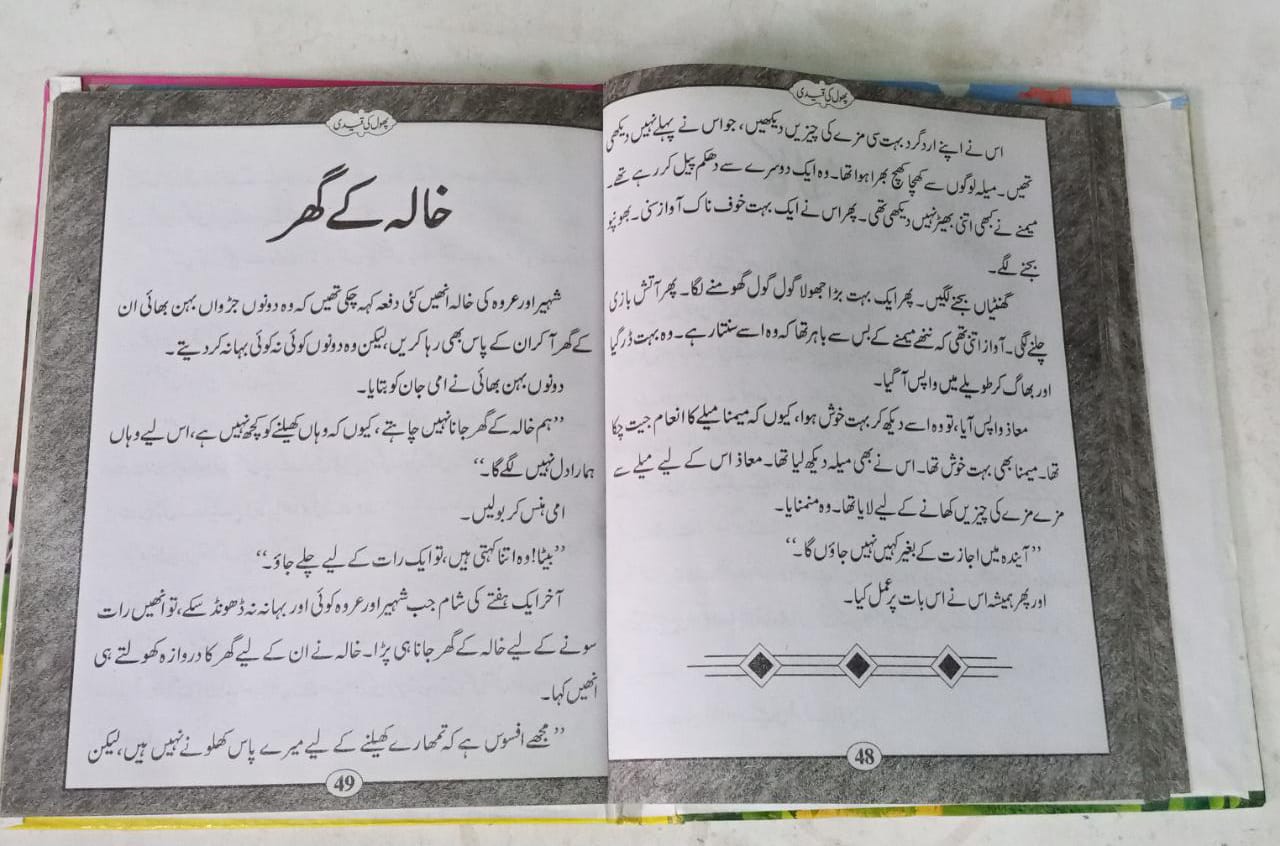 پھول کی قیدی
اس نے اپنے اردگرد بہت سی مزے کی چیزیں دیکھیں، جو اس نے پہلے نہیں دیکھی
تھیں۔ میلہ لوگوں سے کھچا کھچ بھرا ہوا تھا۔ وہ ایک دوسرے سے دھکم پیل کر رہے تھے۔
میمنے نے کبھی اتنی بھیڑ نہیں دیکھی تھی۔ پھر اس نے ایک بہت خوف ناک آواز سنی۔ بھونپو
بجنے لگے۔
گھنٹیاں بجنے لگیں۔ پھر ایک بہت بڑا جھولا گول گول گھومنے لگا۔ پھر آتش بازی
چلنے لگی۔ آواز اتنی تھی کہ ننھے میمنے کے بس سے باہر تھا کہ وہ اسے سنتا رہے۔ وہ بہت ڈر گیا
اور بھاگ کر طویلے میں واپس آ گیا۔
معاذ واپس آیا، تو وہ اسے دیکھ کر بہت خوش ہوا، کیوں کہ میمنا میلے کا انعام جیت چکا
تھا۔ میمنا بھی بہت خوش تھا۔ اس نے بھی میلہ دیکھ لیا تھا۔ معاذ اس کے لیے میلے سے
مزے مزے کی چیزیں کھانے کے لیے لایا تھا۔ وہ منمنایا۔
’’آیندہ میں اجازت کے بغیر کہیں نہیں جاؤں گا۔‘‘
اور پھر ہمیشہ اس نے اس بات پر عمل کیا۔
48
پھول کی قیدی
خالہ کے گھر
شہیر اور عروہ کی خالہ انھیں کئی دفعہ کہہ چکی تھیں کہ وہ دونوں جڑواں بہن بھائی ان
کے گھر آ کر ان کے پاس بھی رہا کریں، لیکن وہ دونوں کوئی نہ کوئی بہانہ کر دیتے۔
دونوں بہن بھائی نے امی جان کو بتایا۔
’’ہم خالہ کے گھر جانا نہیں چاہتے، کیوں کہ وہاں کھیلنے کو کچھ نہیں ہے، اس لیے وہاں
ہمارا دل نہیں لگے گا۔‘‘
امی ہنس کر بولیں۔
’’بیٹا! وہ اتنا کہتی ہیں، تو ایک رات کے لیے چلے جاؤ۔‘‘
آخر ایک ہفتے کی شام جب شہیر اور عروہ کوئی اور بہانہ نہ ڈھونڈ سکے، تو انھیں رات
سونے کے لیے خالہ کے گھر جانا ہی پڑا۔ خالہ نے ان کے لیے گھر کا دروازہ کھولتے ہی
انھیں کہا۔
’’مجھے افسوس ہے کہ تمھارے کھیلنے کے لیے میرے پاس کھلونے نہیں ہیں، لیکن
49